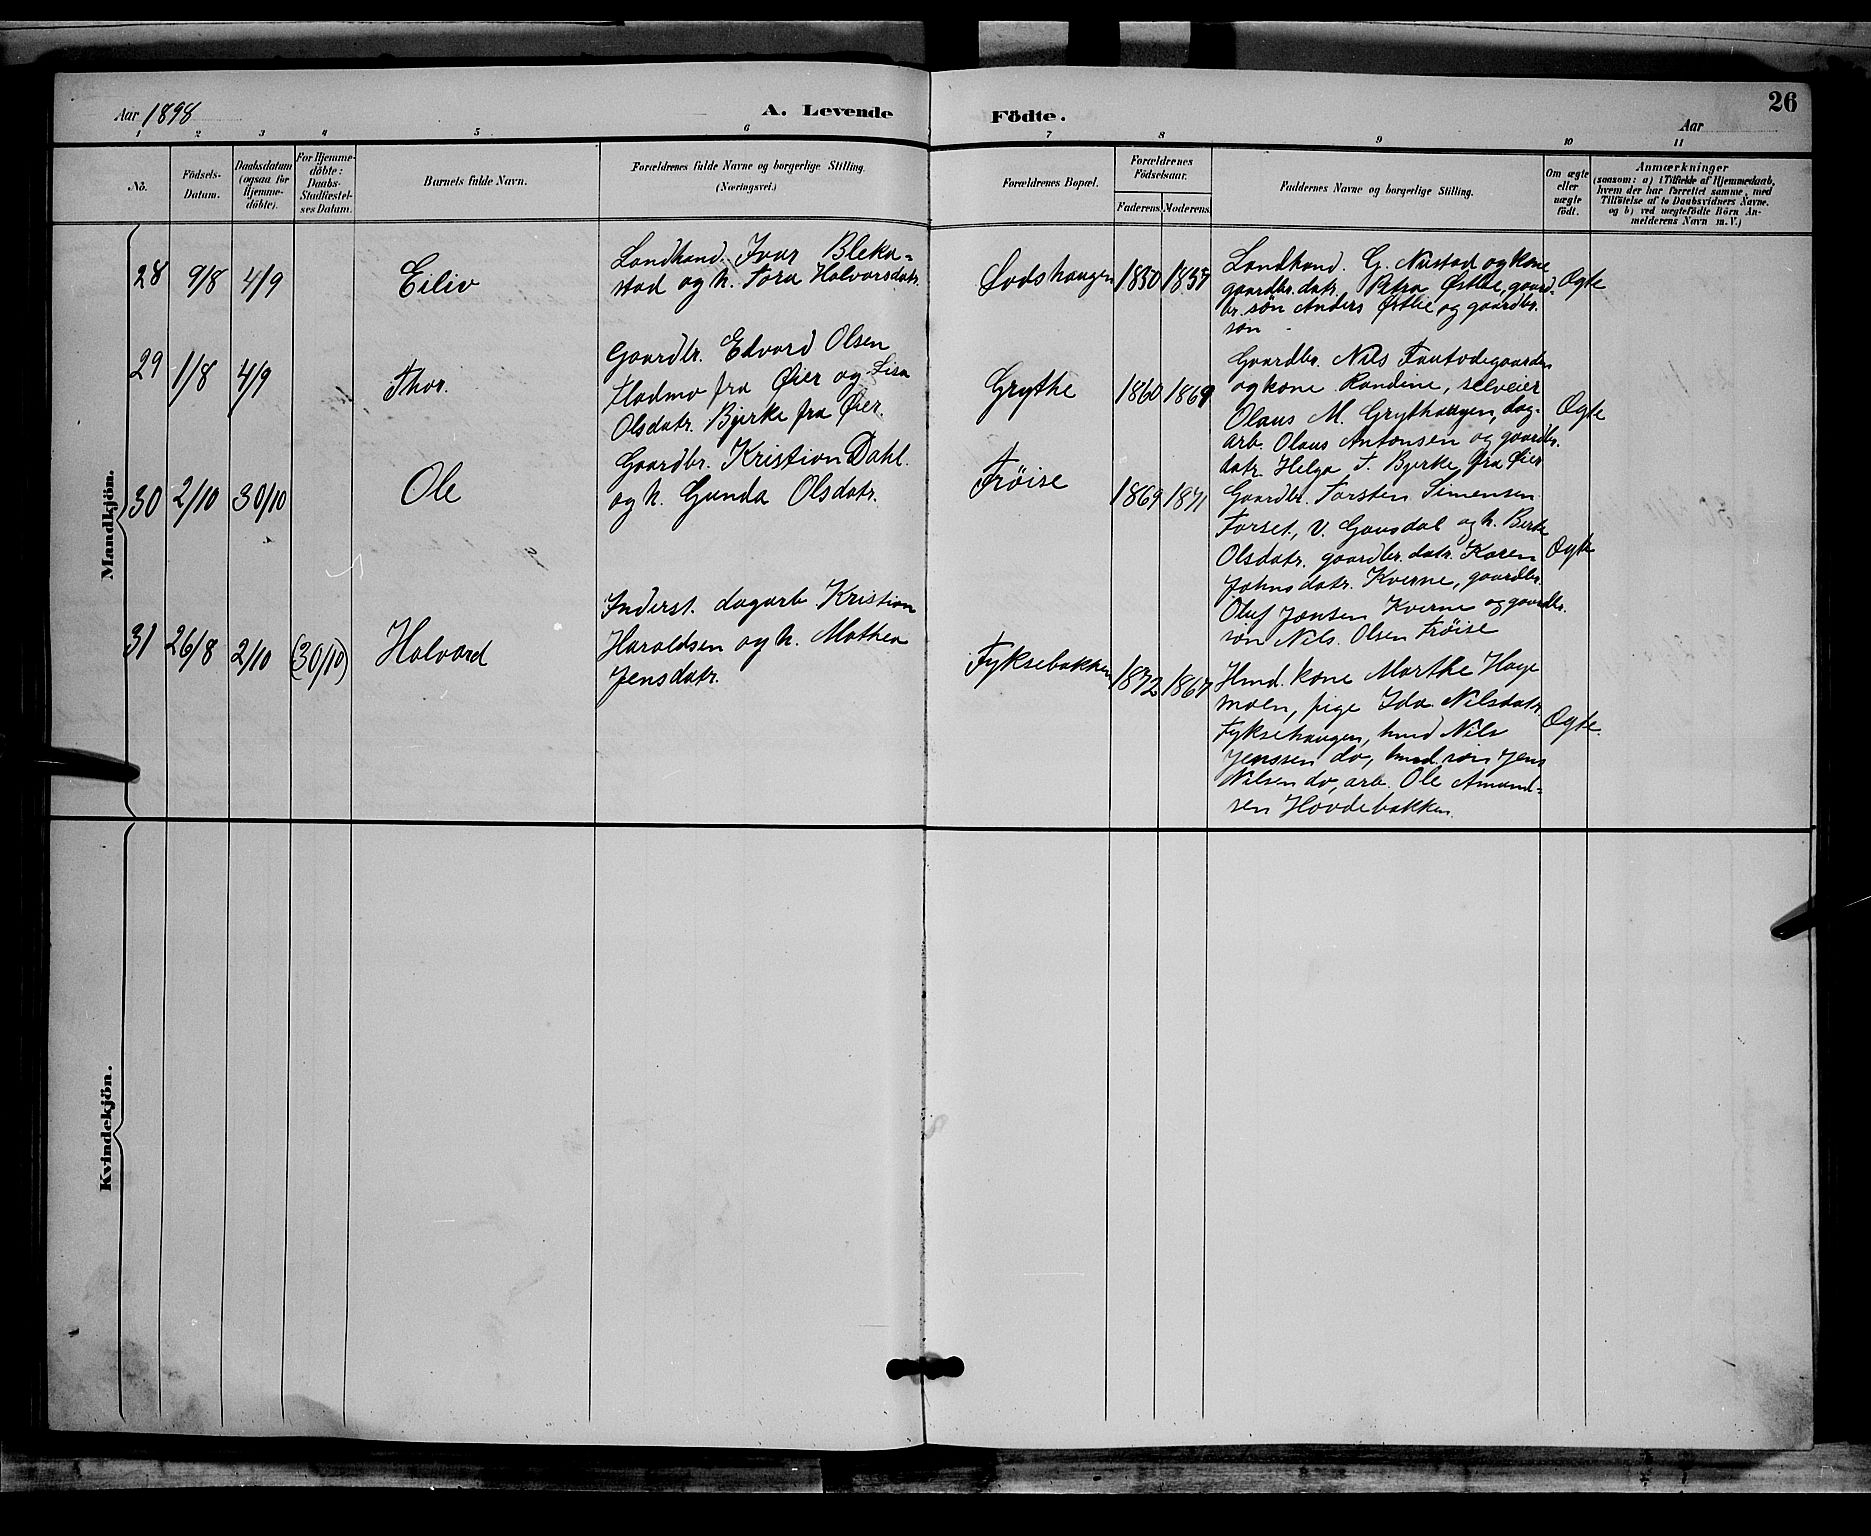 Aar 1898
A. Levende Födte.
Aar
26
1 2 3 4 5 6 7 8 9 10 11
No.
Födsels-
Datum.
Daabsdatum
(ogsaa for
Hjemme-
döbte).
For Hjemme-
döbte:
Daabs-
Stadfæstel-
ses Datum.
Barnets fulde Navn.
Forældrenes fulde Navne og borgerlige Stilling.
(Næringsvei.)
Forældrenes Bopæl.
Forældrenes
Födselsaar.
Faderens. Moderens.
Faddernes Navne og borgerlige Stilling.
Om ægte
eller
uægte
født.
Anmærkninger
(saasom: a) i Tilfælde af Hjemmedaab,
hvem der har forrettet samme, med
Tilföielse af to Daabsvidners Navne.
og b) ved uægtefödte Börn An-
melderens Navn m. V.)
Mandkjön.
28 9/8 4/9
Eiliv
Landhand. Ivar Bleka=
stad og h. Tora Halvorsdatr.
Lodshaugen
1850 1857
Landhand. G. Nustad og kone
gaardbr. datr. Petra Østlie, gaard-
br. søn Anders Østlie og gaardbr.
søn -
Ægte
29 1/8 4/9
Thor.
Gaardbr. Edvard Olsen
Fladmo fra Øier og Lisa
Olsdatr. Bjerke fra Øier.
Grythe
1860 1869
Gaardbr. Nils Fautodegaarden
og kone Randine, selveier
Olaus M. Grythaugen, dag-
arb. Olaus Antonsen og gaardbr.
datr. Helga T. Bjerke fra Øier
Ægte
30 2/10 30/10
Ole
Gaardbr. Kristian Dahl
og h. Gunda Olsdatr.
Frøise
1869 1871
Gaardbr. Torsten Simensen
Forset, V. Gausdal og h. Berte
Olsdatr. gaardbr. datr. Karen
Johnsdatr. Kverne, gaardbr.
Oluf Jansen Kverne og gaardbr.
søn Nils Olsen Frøise
Ægte
31 26/8 2/10 (30/10)
Halvard
Inderst. dagarb Kristian
Haraldsen og h. Mathea
Jensdatr.
Fyksebakken
1872 1867
Hmd. kone Marthe Hage
moen, pige Ida Nilsdatr.
Fyksehaugen, hmd Nils
Jenssen do, hmd. søn Jens
Nilsen do, arb. Ole Amund=
sen Hovdebakken
Ægte.
Kvindekjön.